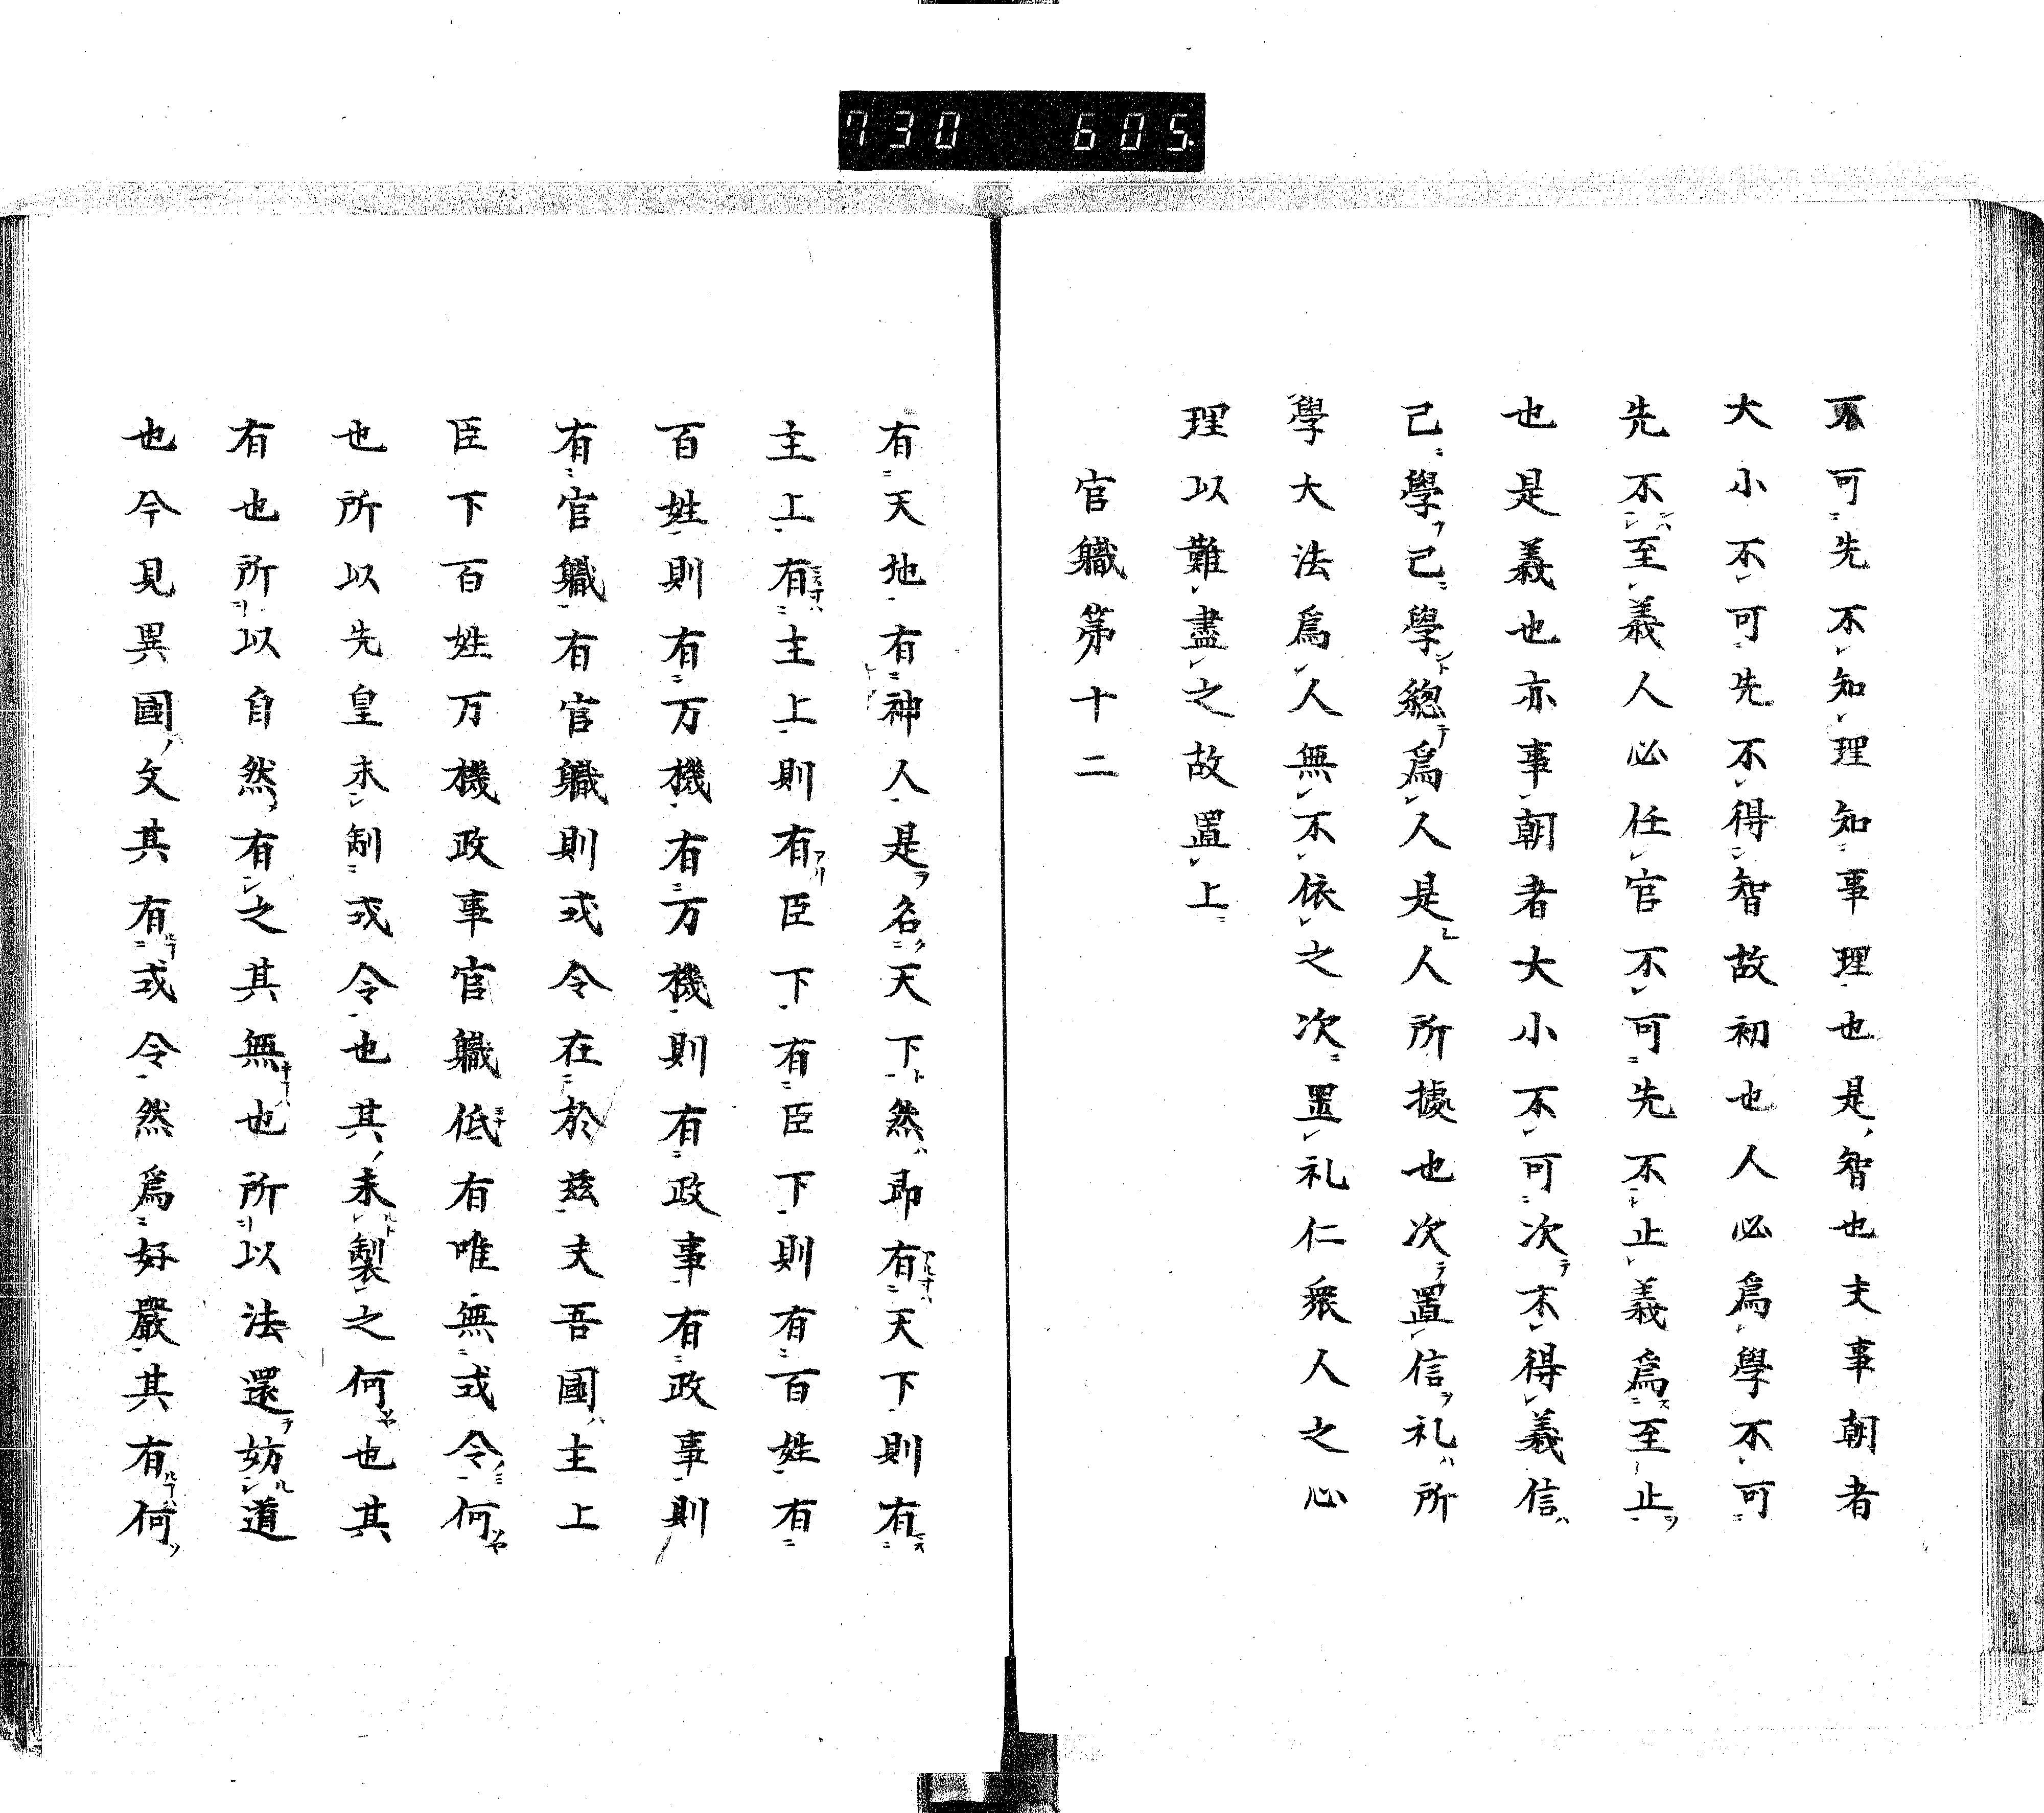 730 605
不可先不知理知事理也是智也夫事朝者
大小不可先不得智故初也人必爲學不可
先不至義人必任官不可先不止義爲至止
也是義也亦事朝者大小不可次不得義信
己學己學總爲人是人所據也次置信礼所
學大法爲人無不依之次置礼仁衆人之心
理以難盡之故置上
官職第十二
有天地有神人是名天下然即有天下則有
主上有主上則有臣下有臣下則有百姓有
百姓則有万機有万機則有政事有政事則
有官職有官職則式令在於茲夫吾國主上
臣下百姓万機政事官職低有唯無式令何
也所以先皇未制式令也其未製之何也其
有也所以自然有之其無也所以法還妨道
也今見異國文其有式令然爲好嚴其有何